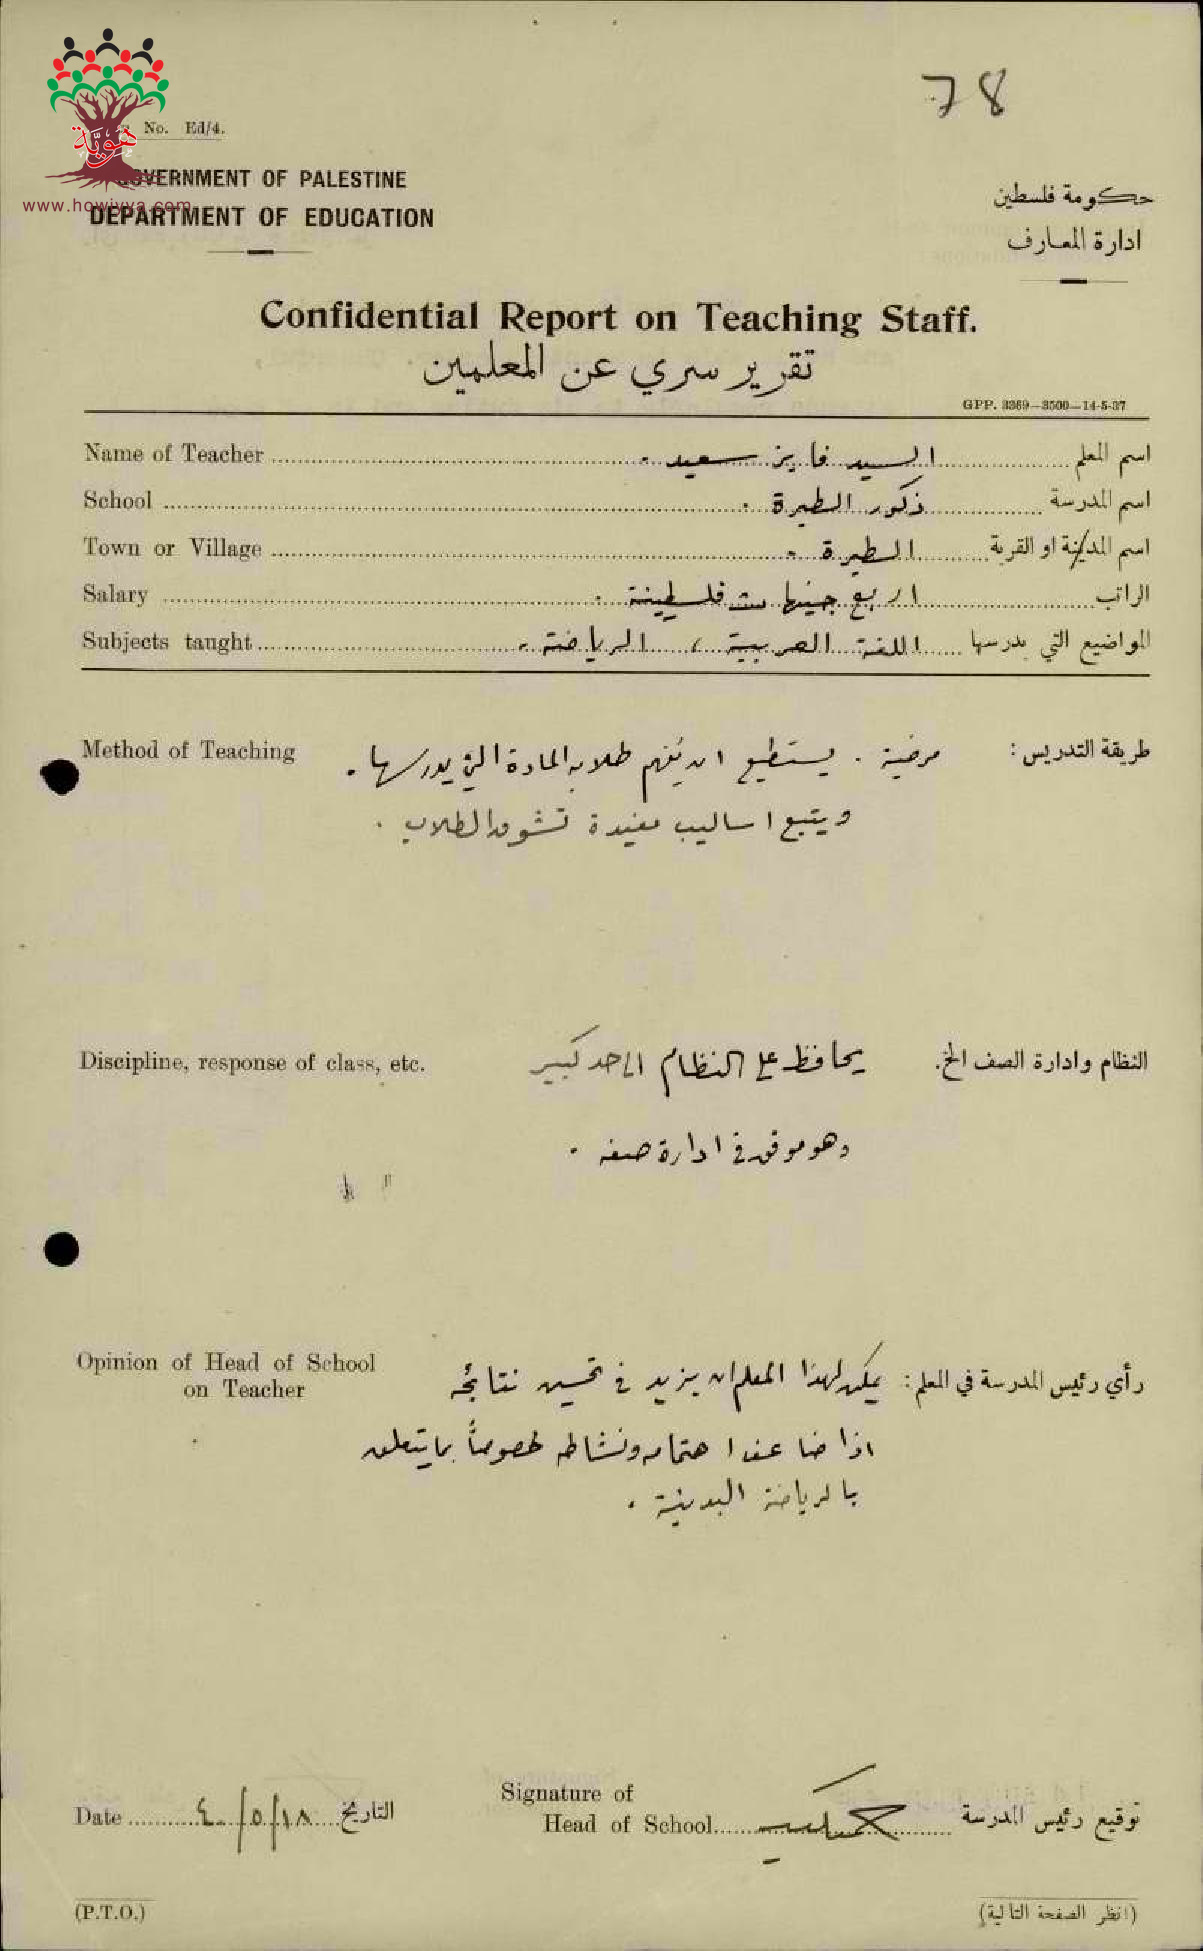 78
هوية
No. Ed/4.
www.howiyya.com
GOVERNMENT OF PALESTINE
DEPARTMENT OF EDUCATION
حكومة فلسطين
ادارة المعارف
Confidential Report on Teaching Staff.
تقرير سري عن المعلمين
GPP. 3369—3500—14-5-37
Name of Teacher السيد فايز سعيد . اسم المعلم
School ذكور الطيرة . اسم المدرسة
Town or Village الطيرة . اسم المدينة او القرية
Salary اربع جنيهات فلسطينة . الراتب
Subjects taught اللغة العربية ، الرياضة . المواضيع التي يدرسها
Method of Teaching طريقة التدريس : مرضية . يستطيع ان يُفهم طلابه المادة التي يدرسها .
ويتبع اساليب مفيدة تشوق الطلاب .
Discipline, response of class, etc. النظام وادارة الصف الخ. يحافظ على النظام الى حد كبير
وهو موفق في ادارة صفه .
Opinion of Head of School
on Teacher
رأي رئيس المدرسة في المعلم : يمكن لهذا المعلم ان يزيد في تحسين نتائجه
اذا ضاعف اهتمامه ونشاطه خصوصاً بما يتعلق
بالرياضة البدنية .
Signature of
Head of School توقيع رئيس المدرسة
Date ٤٠/٥/١٨ التاريخ
(P.T.O.) (انظر الصفحة التالية)